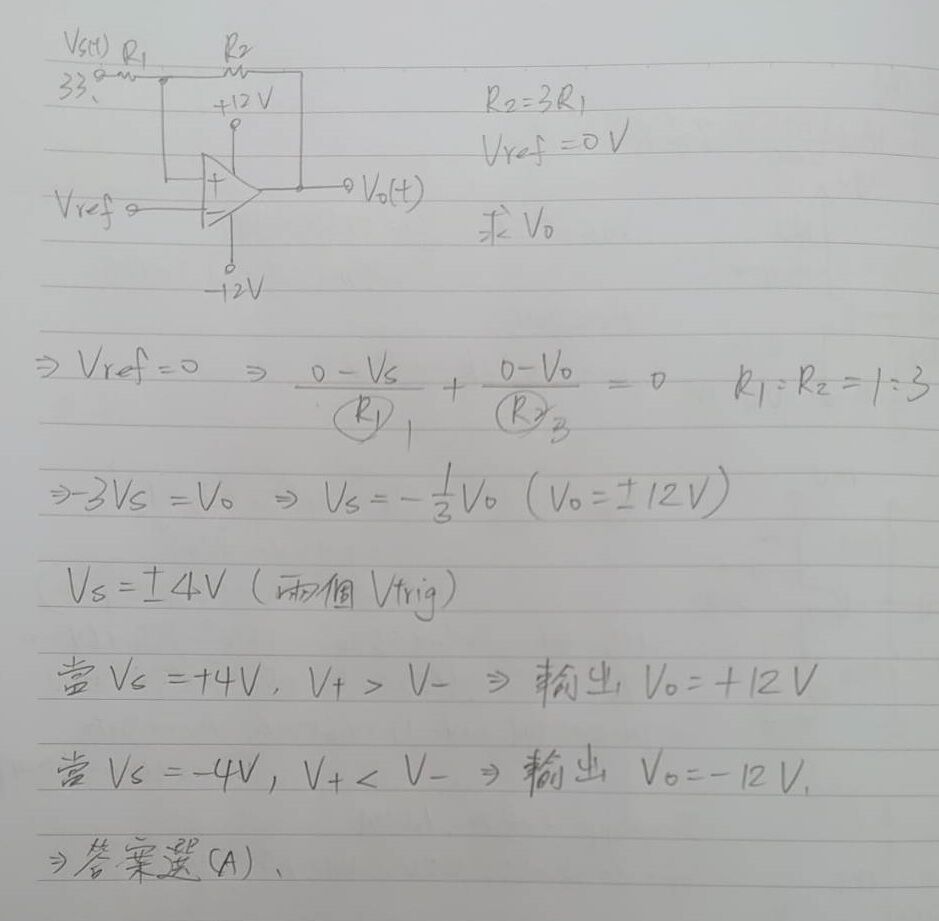 Vs(t) R₁ R₂
33、
+12V
R₂=3R₁
Vref=0V
Vo(t)
Vref
求 Vo
-12V
⇒ Vref=0 ⇒ (0-Vs)/R₁ + (0-Vo)/R₂ = 0 R₁:R₂=1:3
1 3
⇒-3Vs=Vo ⇒ Vs=-1/3Vo (Vo=±12V)
Vs=±4V (兩個 Vtrig)
當 Vs=+4V, V+ > V- ⇒ 輸出 Vo=+12V
當 Vs=-4V, V+ < V- ⇒ 輸出 Vo=-12V.
⇒答案選(A)、